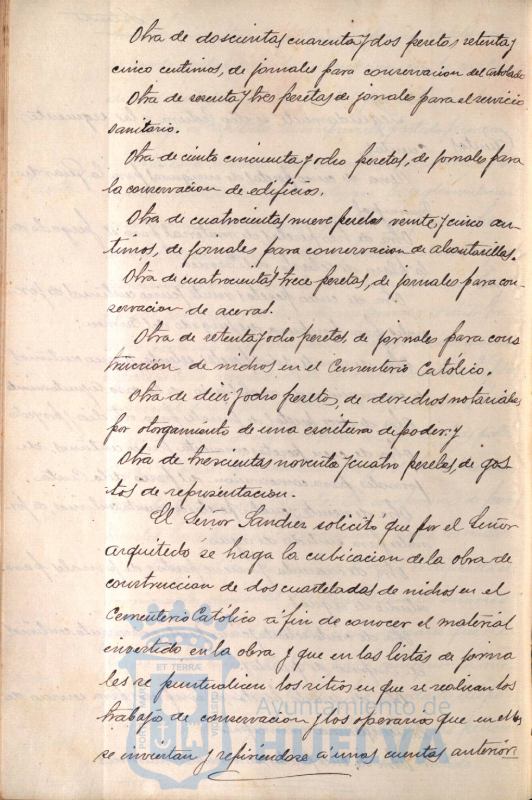 Otra de doscientas cuarenta y dos pesetas setenta y
cinco centimos, de jornales para conservacion del arbolado
Otra de sesenta y tres pesetas de jornales para el servicio
sanitario.
Otra de ciento cincuenta y ocho pesetas, de jornales para
la conservacion de edificios.
Otra de cuatrocientas nueve pesetas veinte y cinco cen-
timos, de jornales para conservacion de alcantarillas.
Otra de cuatrocientas trece pesetas, de jornales para con-
servacion de aceras.
Otra de setenta y ocho pesetas, de jornales para cons
trucción de nichos en el Cementerio Católico.
Otra de diez y ocho pesetas, de derechos notariales
por otorgamiento de una escritura de poder: y
Otra de trescientas noventa y cuatro pesetas, de gas-
tos de representacion.
El Señor Sanchez solicitó que por el Señor
arquitecto se haga la cubicacion de la obra de
construccion de dos cuarteladas de nichos en el
Cementerio Católico á fin de conocer el material
invertido en la obra y que en las listas de jorna
les se puntualicen los sitios en que se realizan los
trabajos de conservacion y los operarios que en ellos
se inviertan y refiriéndose á unas cuentas anterior
ET TERRÆ
Ayuntamiento de
HUELVA